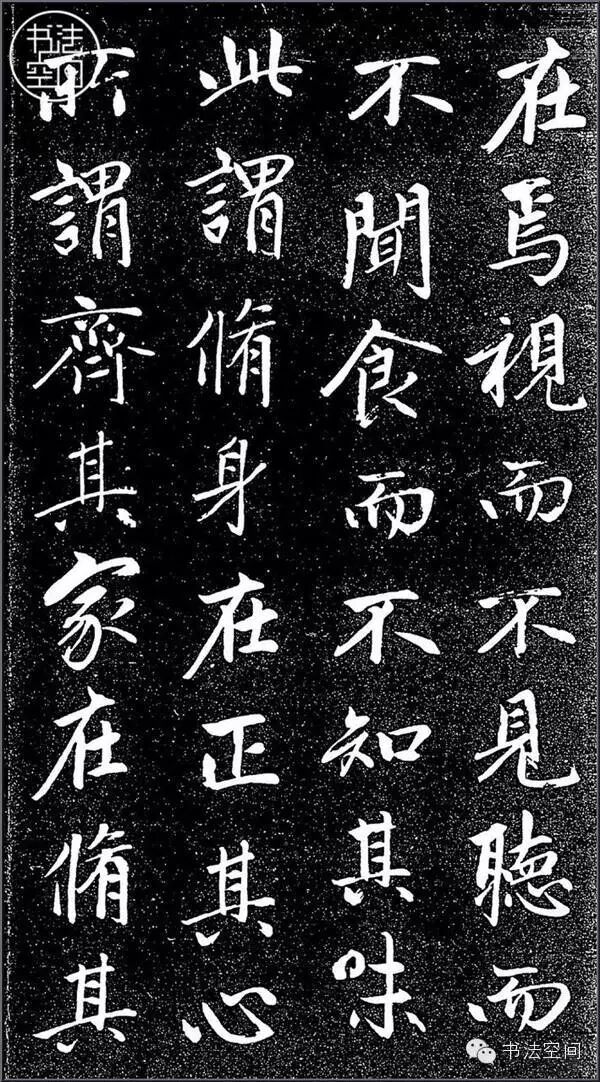 在焉視而不見聽而
不聞食而不知其味
此謂脩身在正其心
所謂齊其家在脩其
书法空间
书法空间